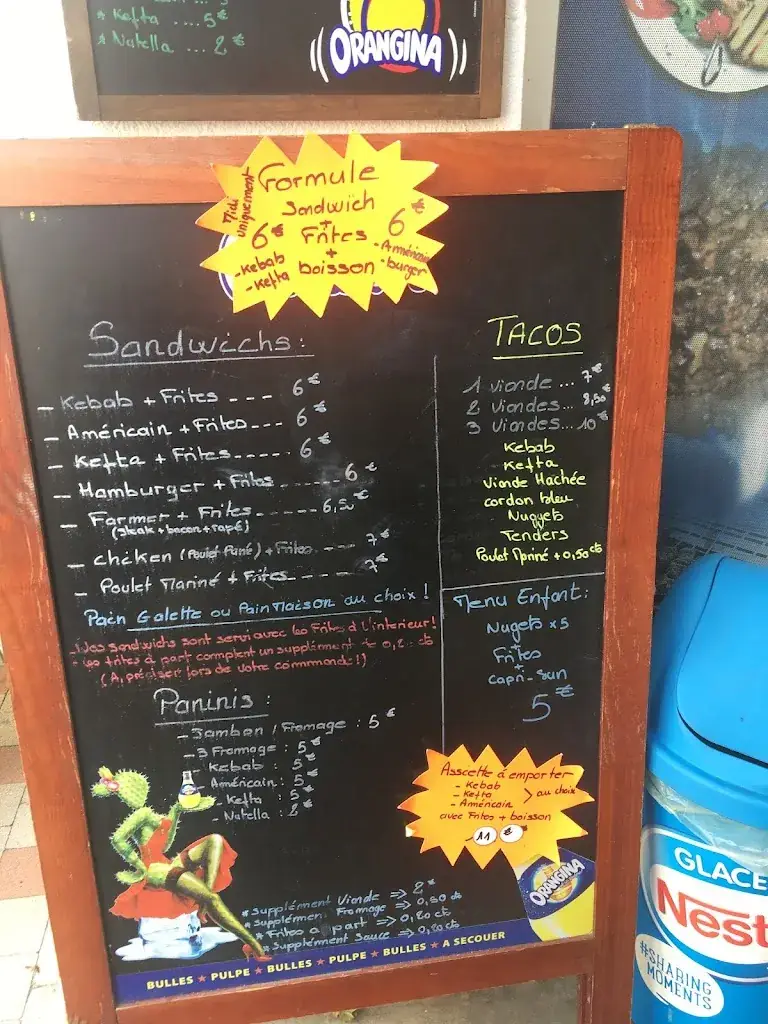 * Kefta .... 5€
* Nutella ... 2€
ORANGINA
Formule
Midi uniquement
Sandwich
+
6€ Frites 6€
+
boisson
- Kebab
- Kefta
- Américain
- burger
Sandwichs:
- Kebab + Frites --- 6€
- Américain + Frites--- 6€
- Kefta + Frites---- 6€
- Hamburger + Frites------ 6€
- Farmer + Frites------ 6,50€
(Steak + bacon + rapé)
- chicken (Poulet Pané) + Frites --- 7€
- Poulet Mariné + Frites---- 7€
Pain Galette ou Pain Maison au choix !
- Nos sandwichs sont servi avec les Frites à l'interieur!
- les frites à part comptent un supplément de 0,20 cts
(A, préciser lors de votre commande!)
Paninis :
- Jambon / Fromage : 5€
- 3 Fromage : 5€
- Kebab : 5€
- Américain : 5€
- Kefta : 5€
- Nutella : 2€
* Supplément Viande => 2€
* Supplément Fromage => 0,50 cts
* Frites a part => 0,20 cts
* Supplément Sauce => 0,20 cts
TACOS
1 viande ... 7€
2 Viandes... 8,50€
3 Viandes... 10€
Kebab
Kefta
Viande Hachée
cordon bleu
Nuggets
Tenders
Poulet Mariné + 0,50 cts
Menu Enfant:
Nugets x5
+
Frites
+
Capri-Sun
5€
Assiette à emporter
- Kebab
- Kefta > au choix
- Américain
avec Frites + boisson
11 €
ORANGINA
BULLES ★ PULPE ★ BULLES ★ PULPE ★ BULLES ★ A SECOUER
GLACE
Nest
#SHARING
MOMENTS